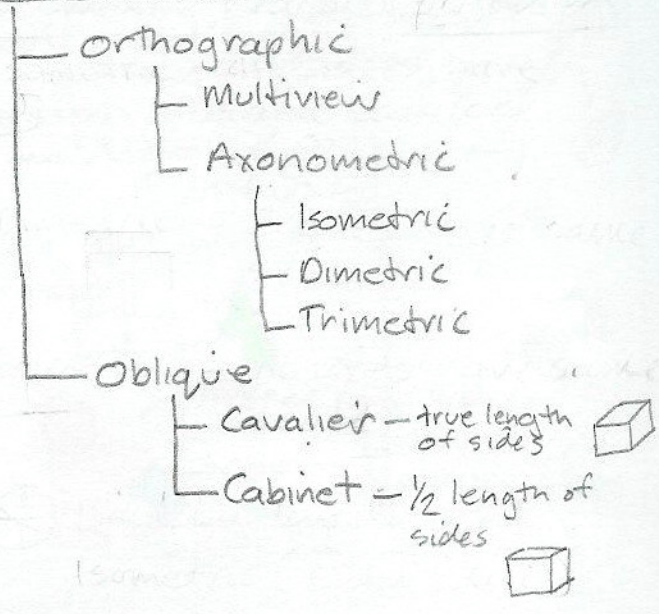 Orthographic
Multiview
Axonometric
Isometric
Dimetric
Trimetric
Oblique
Cavalier - true length
of sides
Cabinet - 1/2 length of
sides
Isometric